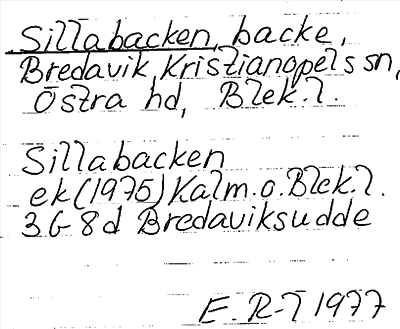 Sillabacken, backe,
Bredavik, Kristianopels sn,
Östra hd, Blek. l.
Sillabacken
ek (1975) Kalm. o. Blek. l.
3G 8d Bredaviksudde
E. R-T 1977